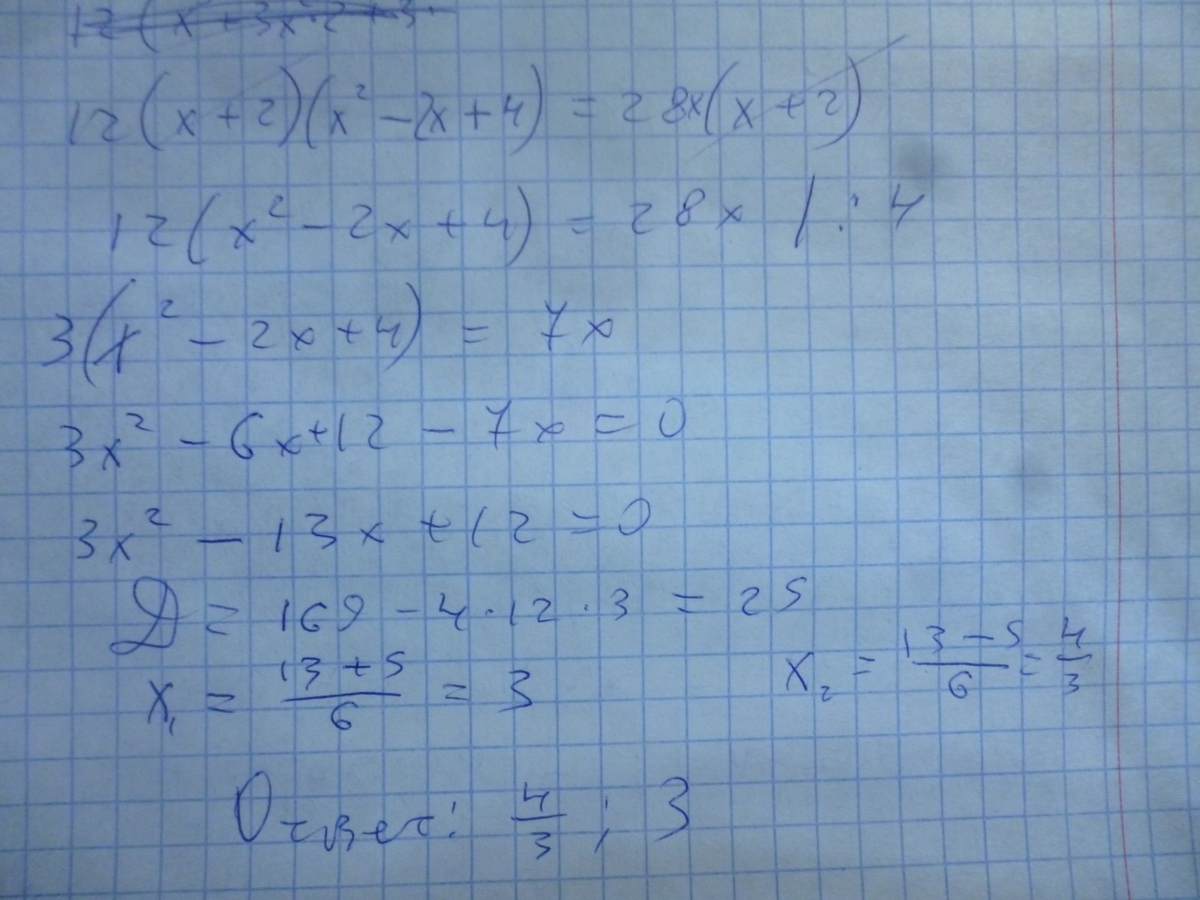 12(x+2)(x²-2x+4) = 28x(x+2)
12(x²-2x+4) = 28x | : 4
3(x²-2x+4) = 7x
3x² - 6x+12 - 7x = 0
3x² - 13x + 12 = 0
D = 169 - 4·12·3 = 25
x₁ = (13+5)/6 = 3 x₂ = (13-5)/6 = 4/3
Ответ: 4/3 ; 3